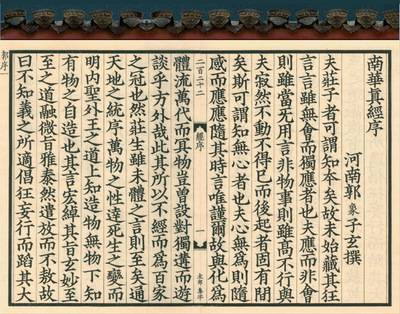 南華真經序
河南郭象子玄撰
夫莊子者可謂知本矣故未始藏其狂
言言雖無會而獨應者也夫應而非會
則雖當无用言非物事則雖高不行與
夫寂然不動不得已而後起者固有間
矣斯可謂知無心者也夫心無為則隨
感而應應隨其時言唯謹爾故與化為
二百二十二
經序
一
體流萬代而冥物豈曾設對獨遘而遊
談乎方外哉此其所以不經而為百家
之冠也然莊生雖未體之言則至矣通
天地之統序萬物之性達死生之變而
明內聖外王之道上知造物無物下知
有物之自造也其言宏綽其旨玄妙至
至之道融微旨雅泰然遣放而不敖故
曰不知義之所適倡狂妄行而蹈其大
郭序